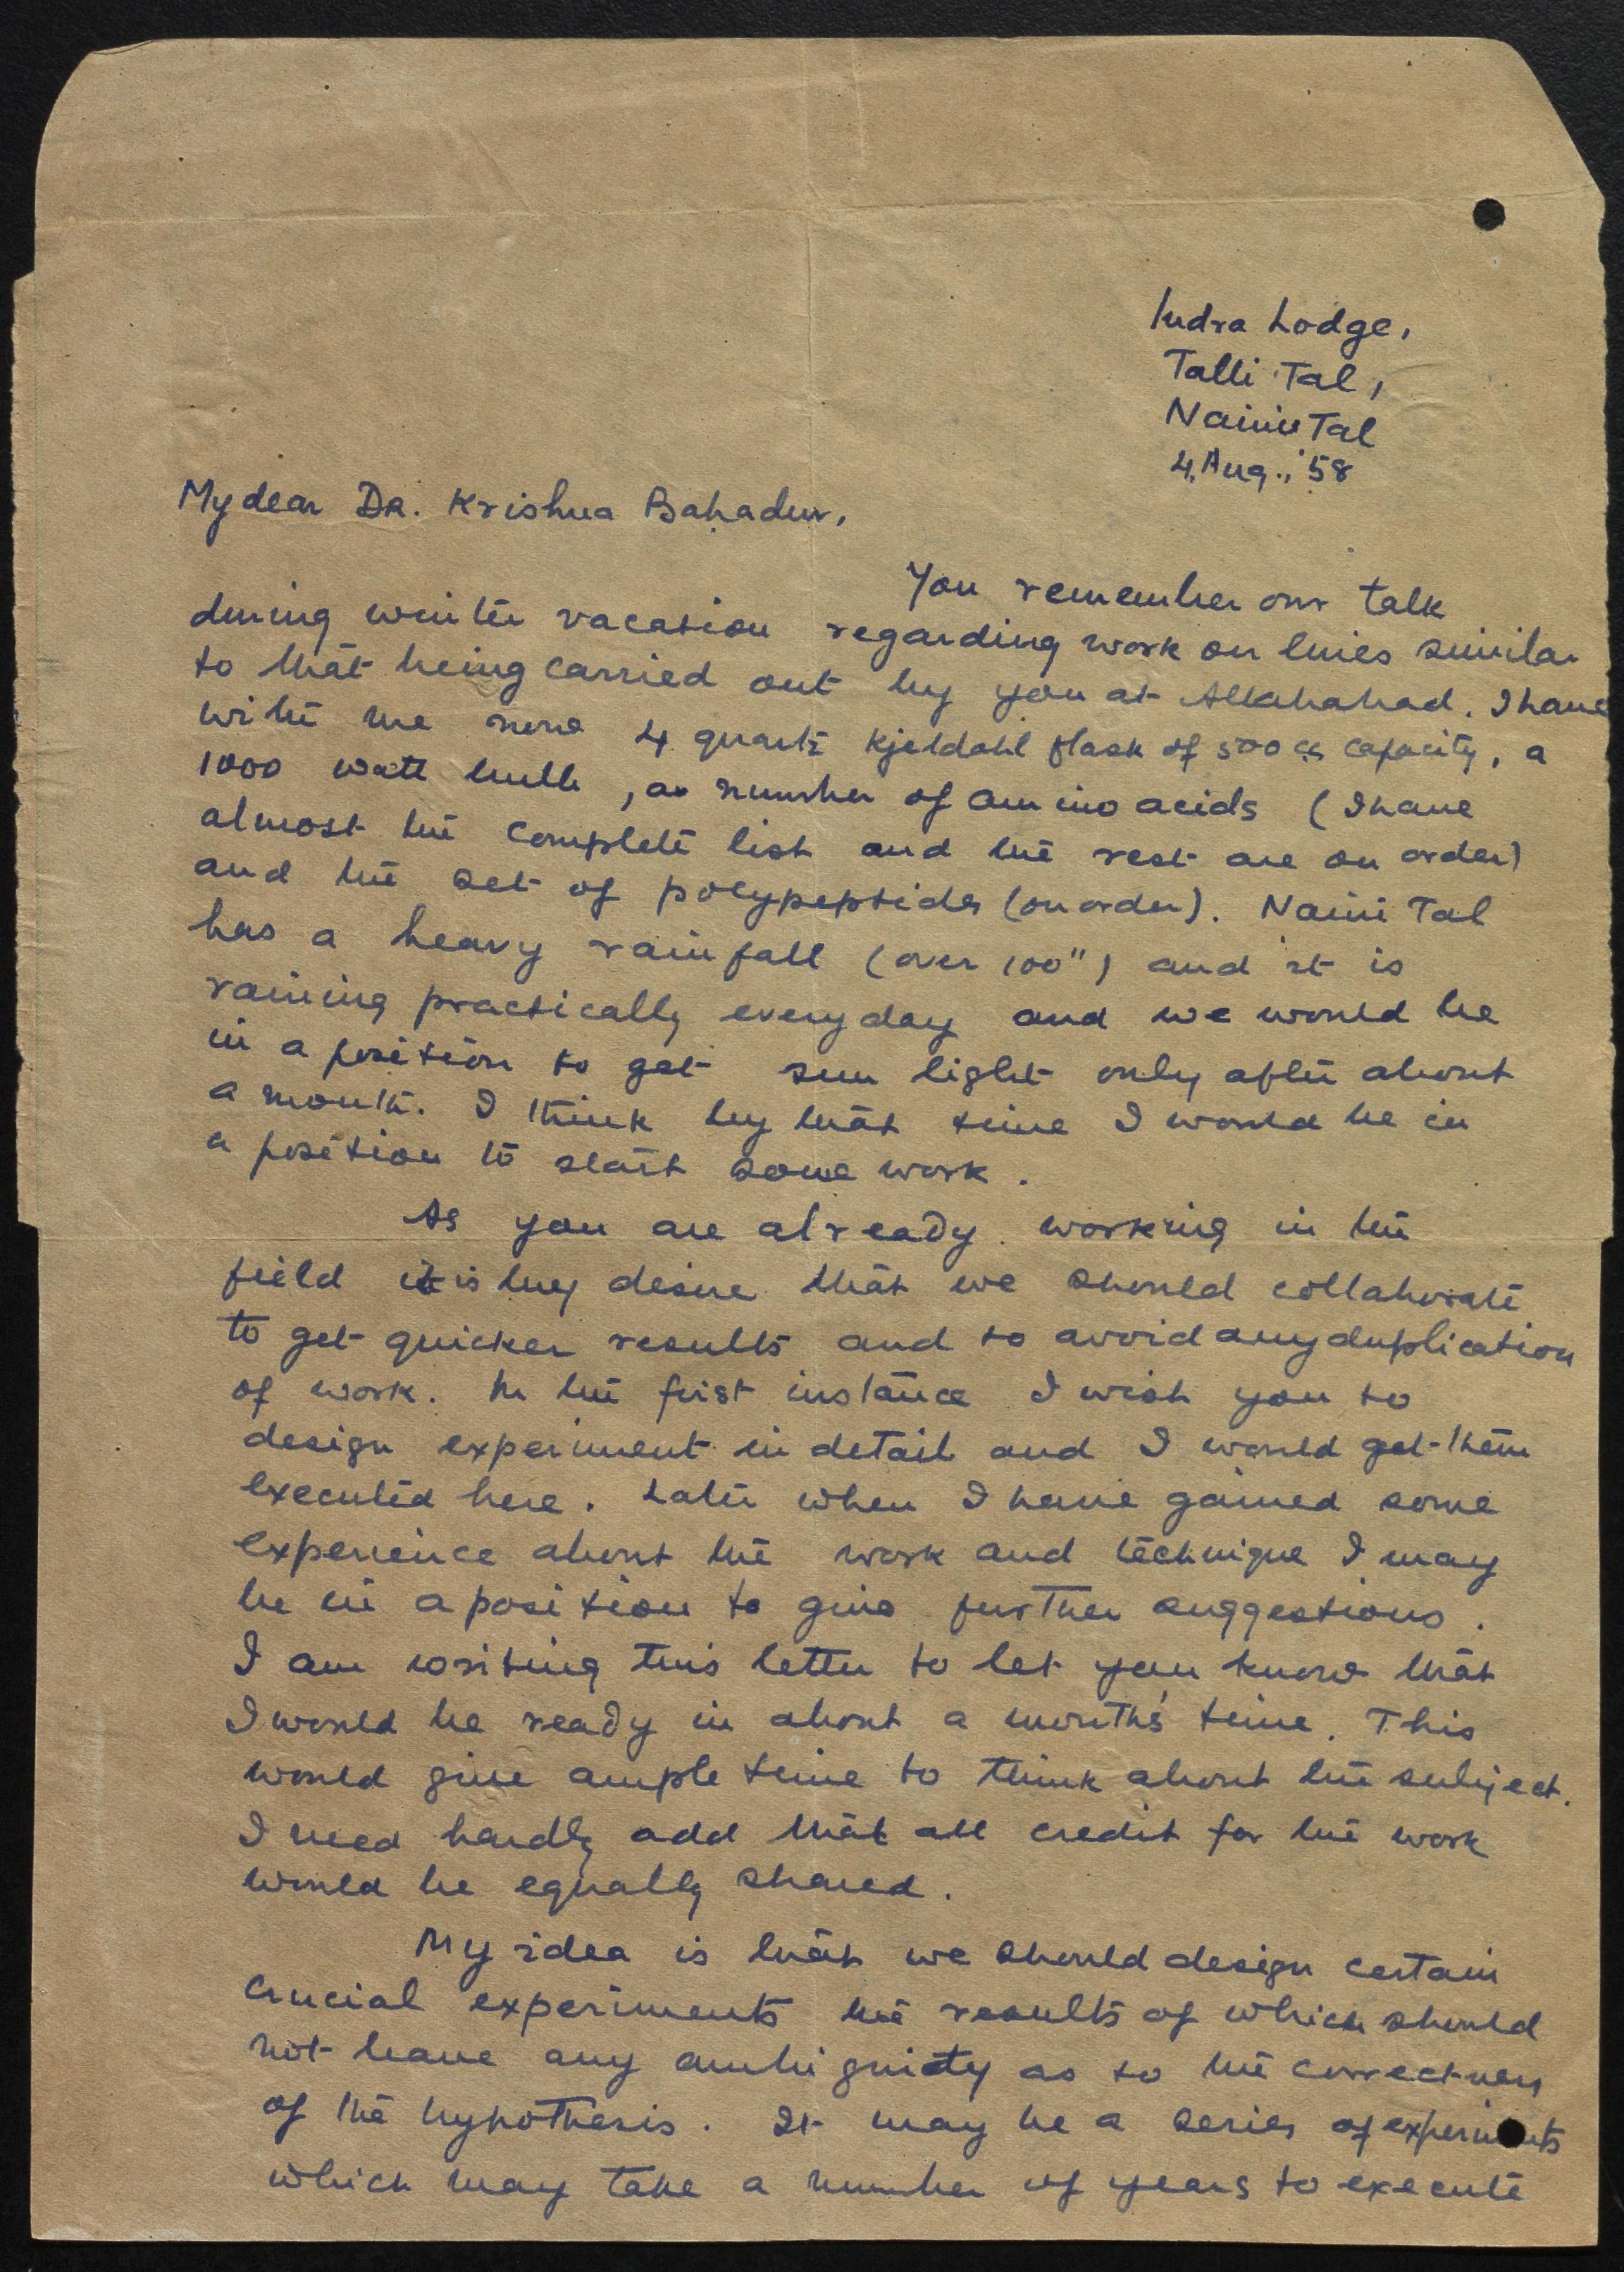 Indra Lodge,
Talli Tal,
Naini Tal
4, Aug., '58
My dear DR. Krishna Bahadur,
You remember our talk
during winter vacation regarding work on lines similar
to that being carried out by you at Allahabad. I have
with me now 4 quartz Kjeldahl flask of 500 cc capacity, a
1000 watt bulb, a number of amino acids (I have
almost the complete list and the rest are on order)
and the set of polypeptides (on order). Naini Tal
has a heavy rainfall (over 100") and it is
raining practically everyday and we would be
in a position to get sun light only after about
a month. I think by that time I would be in
a position to start some work.
As you are already working in the
field it is my desire that we should collaborate
to get quicker results and to avoid any duplication
of work. In the first instance I wish you to
design experiment in detail and I would get them
executed here. Later when I have gained some
experience about the work and technique I may
be in a position to give further suggestions.
I am writing this letter to let you know that
I would be ready in about a month's time. This
would give ample time to think about the subject.
I need hardly add that all credit for the work
would be equally shared.
My idea is that we should design certain
crucial experiments the results of which should
not leave any ambiguity as to the correctness
of the hypothesis. It may be a series of experiments
which may take a number of years to execute